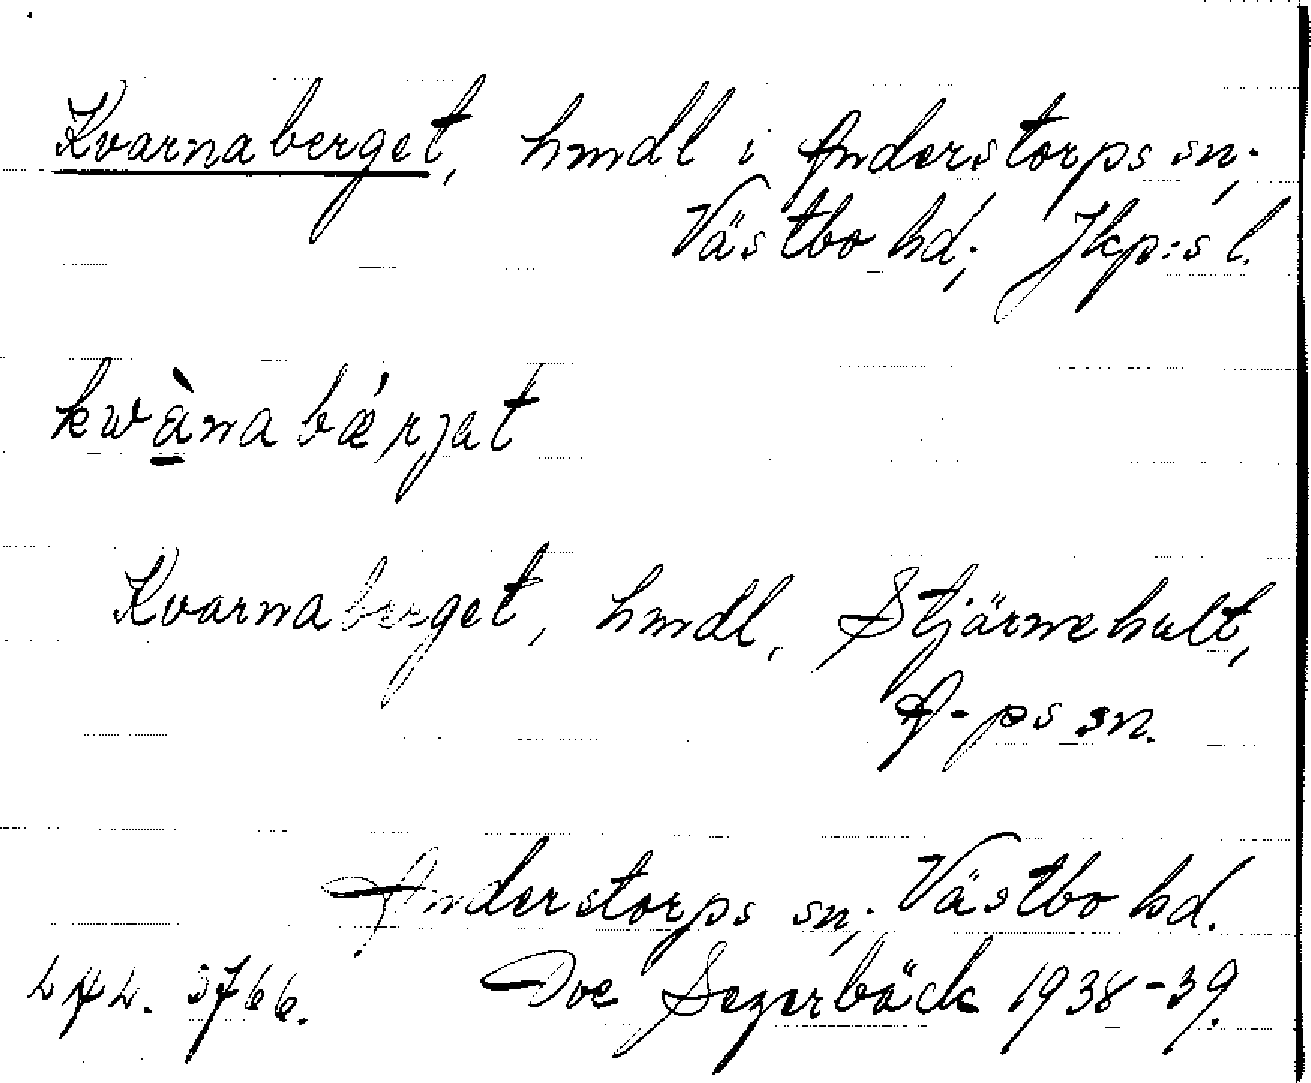 Kvarnaberget, hmdl i Anderstorps sn;
Västbo hd; Jkp:s l.
kwànabǽrjat
Kvarnaberget, hmdl, Stjärnehult,
A-ps sn.
Anderstorps sn; Västbo hd.
3766. Ove Segerbäck 1938-39.